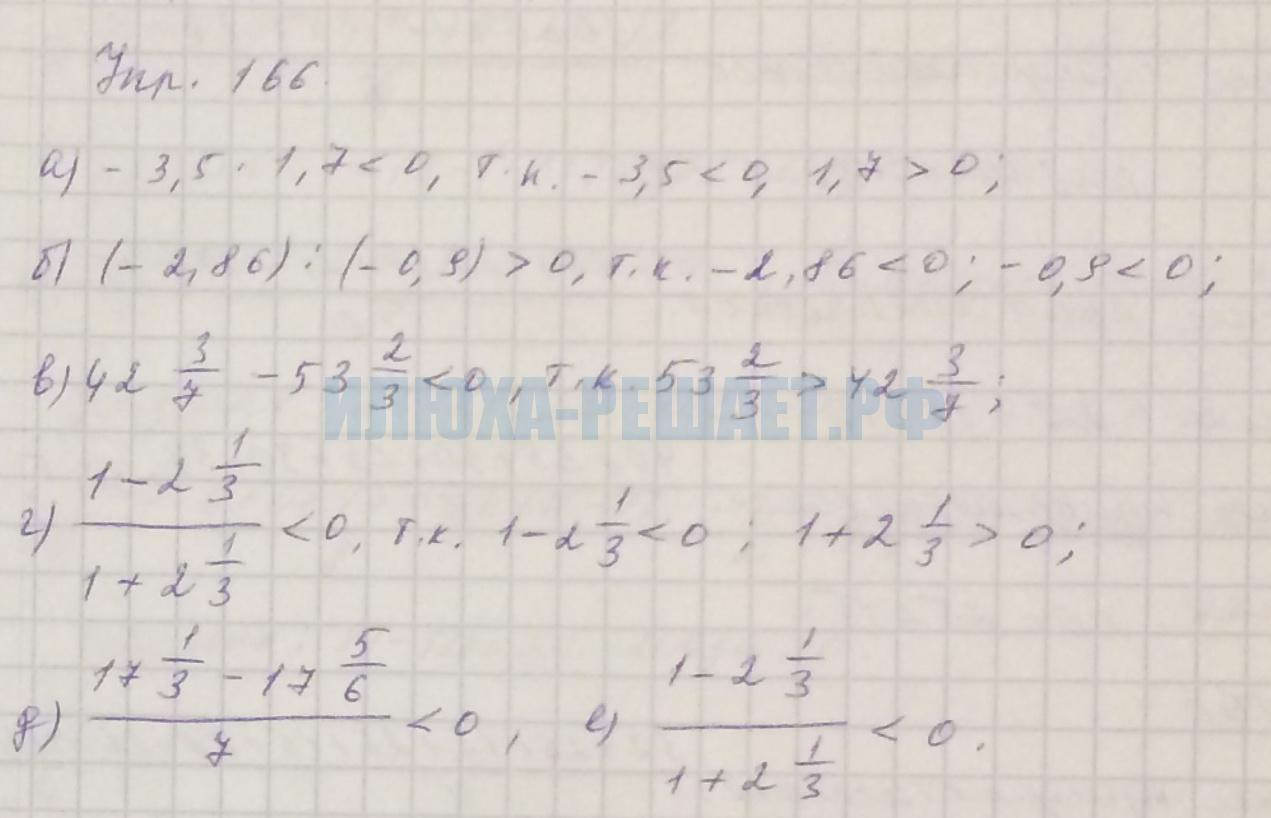 Упр. 166.
а) - 3,5 · 1,7 < 0, т.к. - 3,5 < 0, 1,7 > 0;
б) (- 2,86) : (- 0,9) > 0, т.к. - 2,86 < 0; - 0,9 < 0;
в) 42 3/7 - 53 2/3 < 0, т.к. 53 2/3 > 42 3/7;
ИЛЮХА-РЕШАЕТ.РФ
г) (1 - 2 1/3)/(1 + 2 1/3) < 0, т.к. 1 - 2 1/3 < 0; 1 + 2 1/3 > 0;
д) (17 1/3 - 17 5/6)/7 < 0, е) (1 - 2 1/3)/(1 + 2 1/3) < 0.